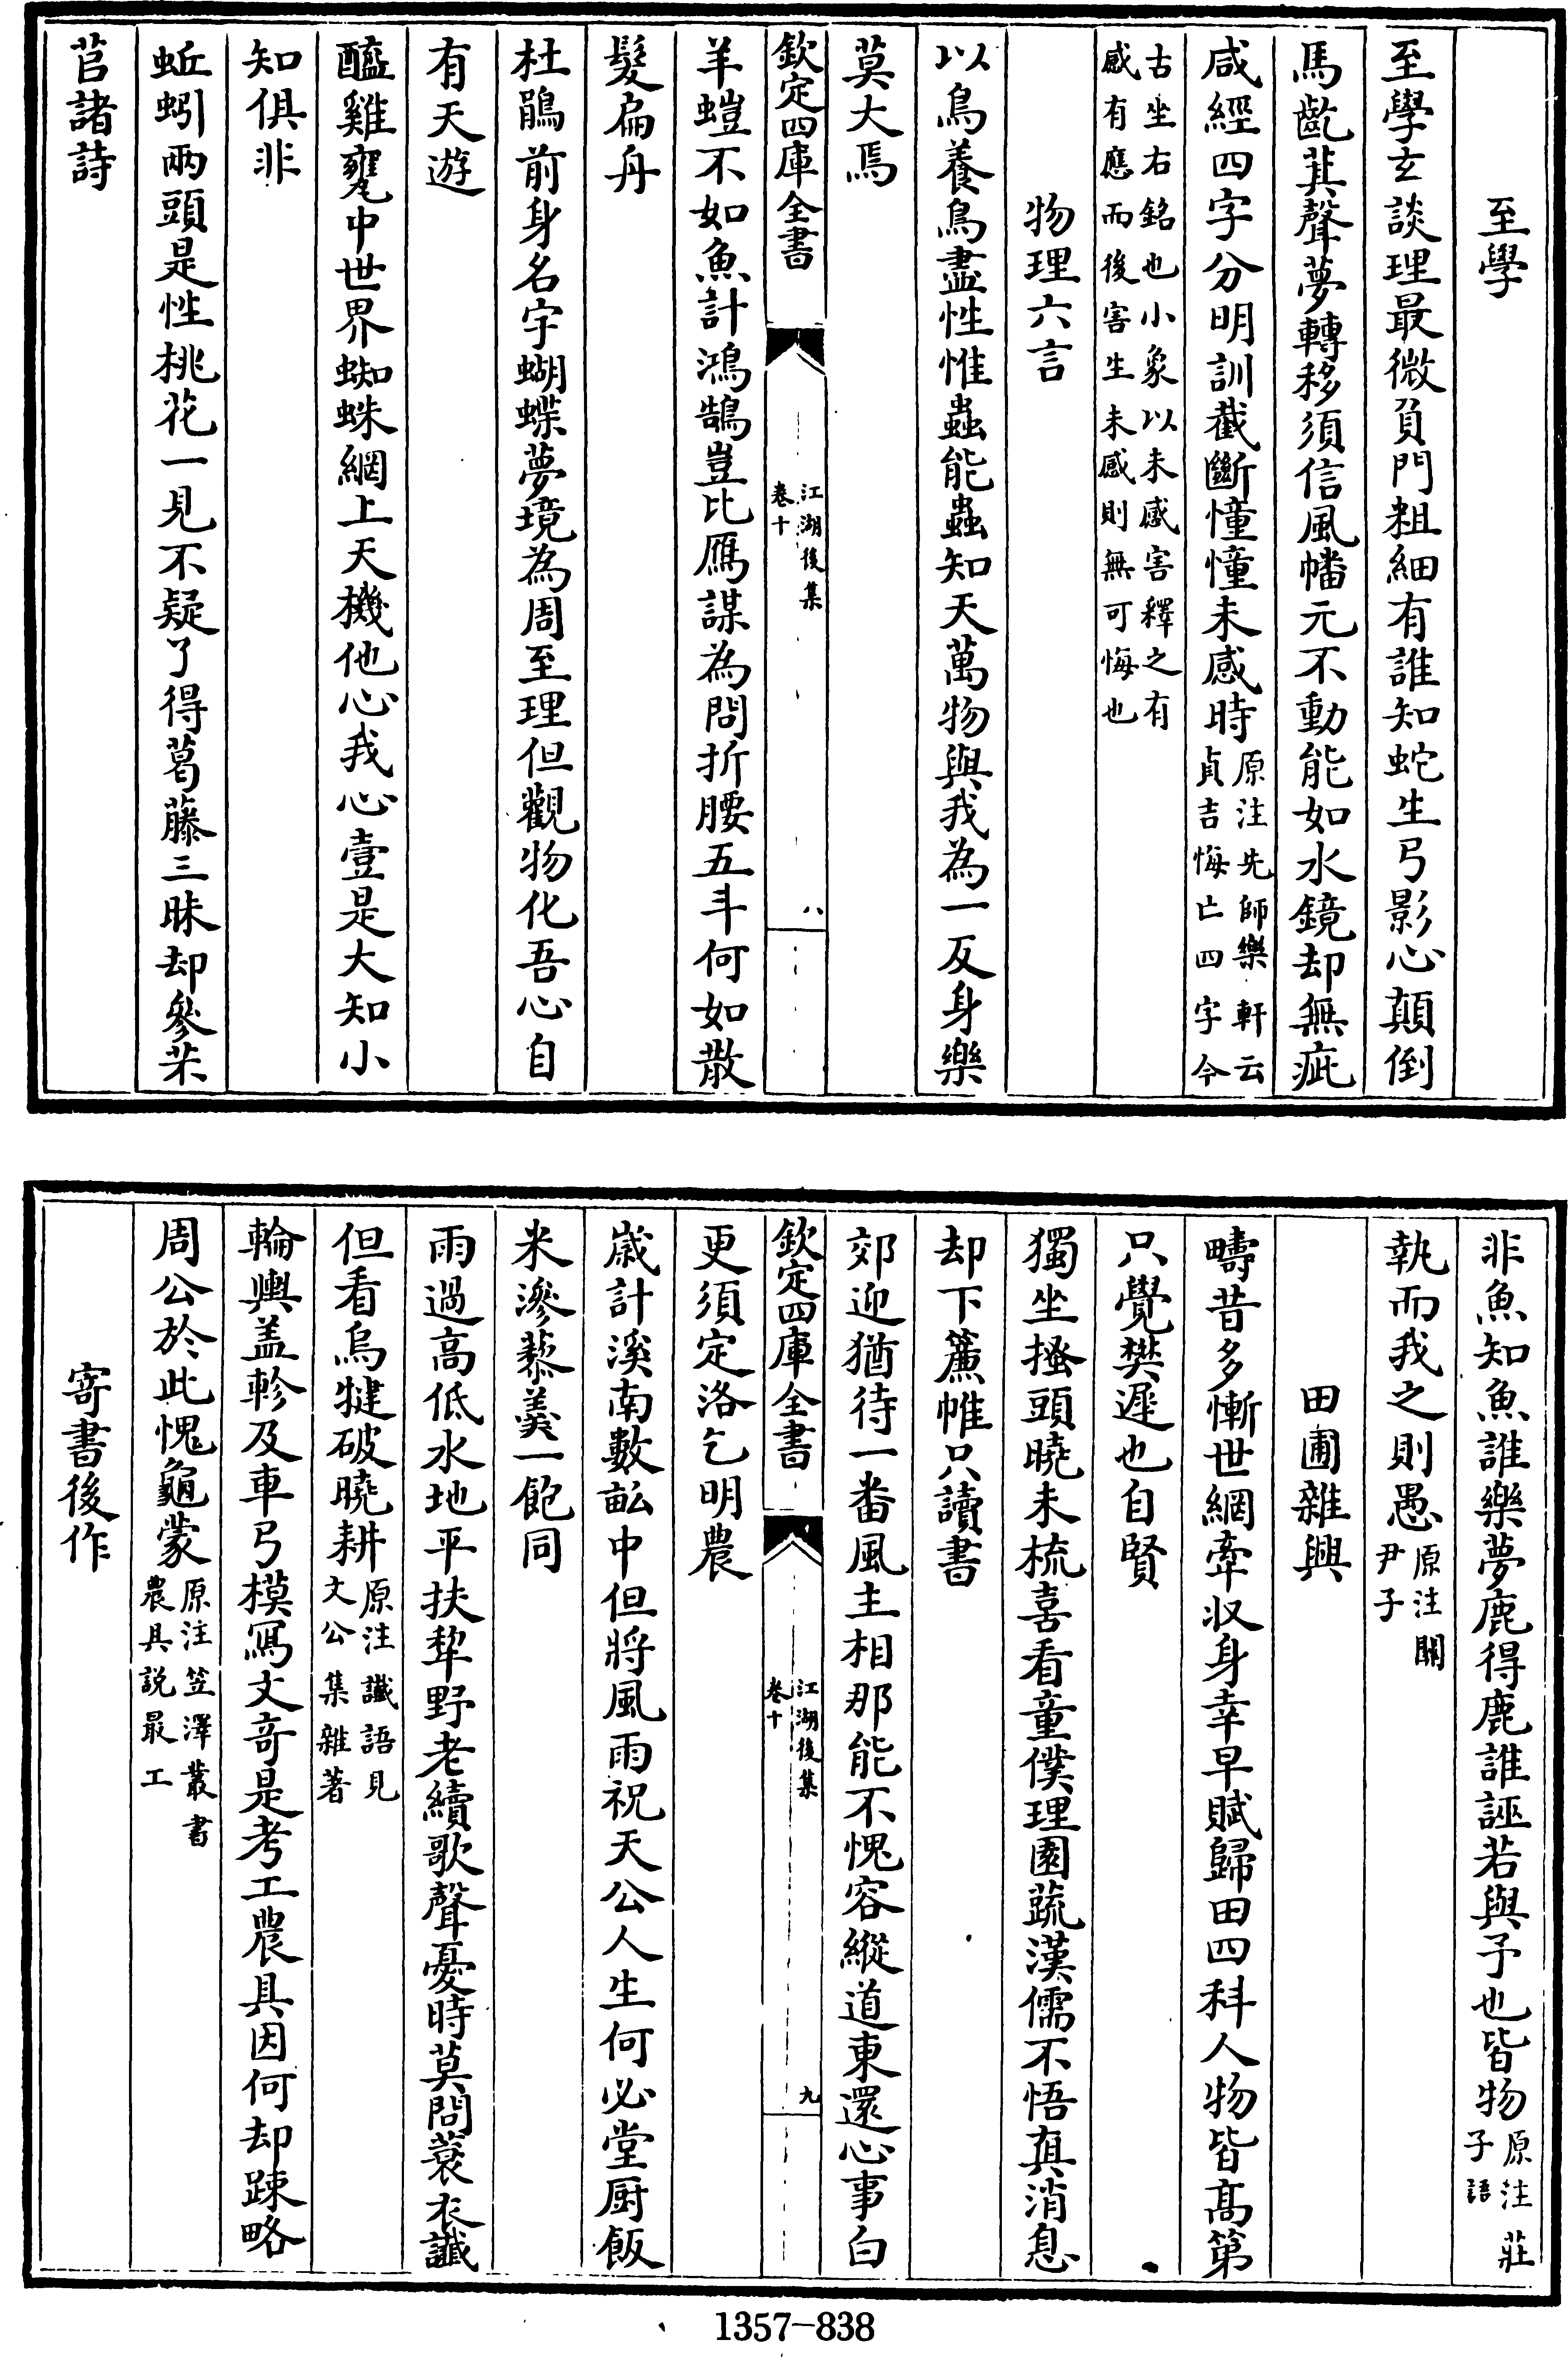 至學
至學玄談理最微負門粗細有誰知蛇生弓影心顛倒
馬齕萁聲夢轉移須信風幡元不動能如水鏡却無疵
咸經四字分明訓截斷憧憧未感時原注先師樂軒云
貞吉悔亡四字今
古坐右銘也小象以未感害釋之有
感有應而後害生未感則無可悔也
物理六言
以鳥養鳥盡性惟蟲能蟲知天萬物與我為一反身樂
莫大焉
欽定四庫全書
江湖後集
卷十
八
羊螘不如魚計鴻鵠豈比鴈謀為問折腰五斗何如散
髮扁舟
杜鵑前身名字蝴蝶夢境為周至理但觀物化吾心自
有天遊
醯雞甕中世界蜘蛛網上天機他心我心壹是大知小
知俱非
蚯蚓兩頭是性桃花一見不疑了得葛藤三昧却參芣
苢諸詩
非魚知魚誰樂夢鹿得鹿誰誣若與予也皆物原注莊
子語
執而我之則愚原注關
尹子
田圃雜興
疇昔多慚世網牽収身幸早賦歸田四科人物皆髙第
只覺樊遲也自賢
獨坐搔頭曉未梳喜看童僕理園蔬漢儒不悟真消息
却下簾帷只讀書
郊迎猶待一畨風主相那能不愧容縱道東還心事白
欽定四庫全書
江湖後集
卷十
九
更須定洛乞明農
歲計溪南數畝中但將風雨祝天公人生何必堂厨飯
米滲藜羹一飽同
雨過高低水地平扶犂野老續歌聲憂時莫問蓑衣讖
但看烏犍破曉耕原注讖語見
文公集雜著
輪輿盖軫及車弓模寫文竒是考工農具因何却踈略
周公於此愧龜蒙原注笠澤叢書
農具説最工
寄書後作
1357-838